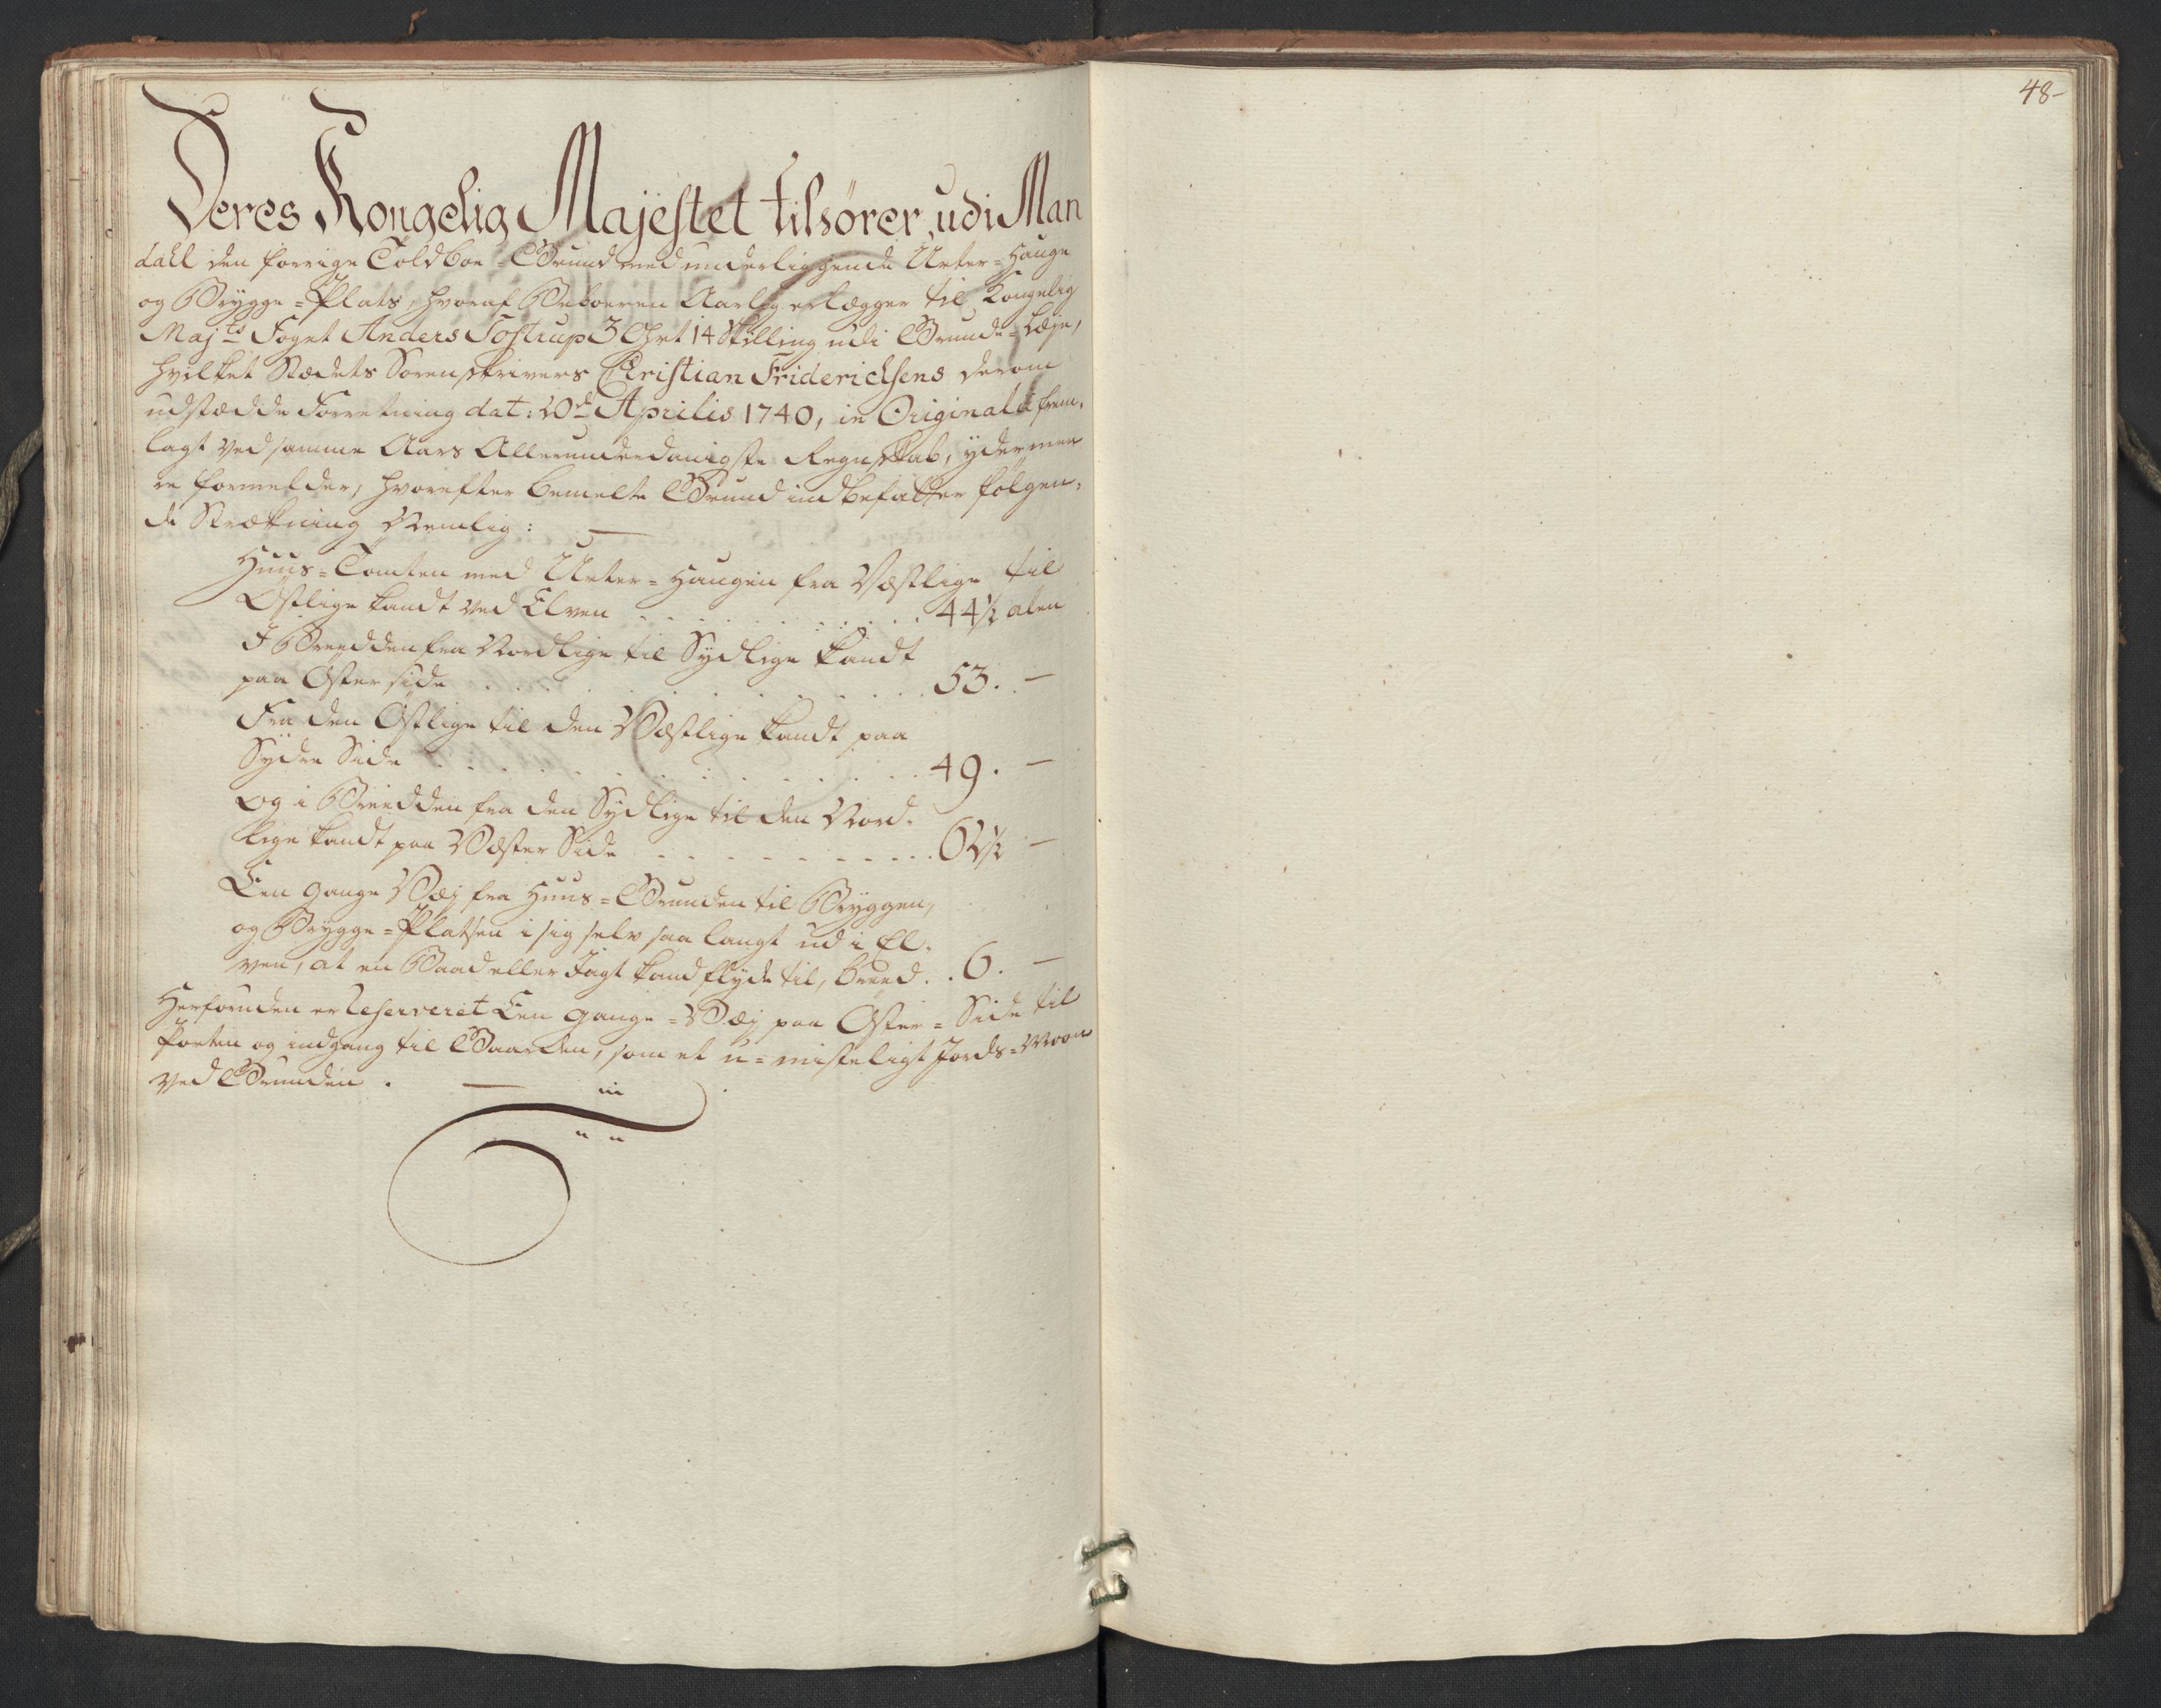 48-
Deres Kongelig Majestet tilhører, udi Man
dahl den forrige Toldboe-Grund med underliggende Urter-Hauge
og Brygge-Plats, hvoraf Beboeren Aarlig erlægger til Kongelig
Majts Foget Anders Tostrup 3 Ort 14 Skilling udi Grunde-Leje,
hvilket Stædets Sorenskrivers Christian Friderichsens derom
udstædde Forretning dat: 20de Aprilis 1740, in Originali frem-
lagt ved samme Aars Allerunderdanigste Regnskab, ydermee
re formelder, hvorefter bemelte Grund indbefatter følgen-
de Strækning Nemlig:
Huus-Tomten med Urter-Haugen fra Væstlige til
Østlige kandt ved Elven . . . . . . . . . . 44 1/2 alen
I Breedden fra Nordlige til Sydlige kandt
paa Øster side . . . . . . . . . . . . 53. -
Fra den Østlige til den Væstlige kandt paa
Sydre Side . . . . . . . . . . . . . 49. -
Og i Breedden fra den Sydlige til den Nord-
lige kandt paa Væster Side . . . . . . . . . . 62 1/2 -
Een gange Væj fra Huus-Grunden til Bryggen,
og Brygge-Platsen i sig selv saa langt ud i El-
ven, at en Baad eller Jagt kand flyde til, breed . . 6. -
Herforuden er reserveret Een gange-Væj paa Øster-Side til
Porten og indgang til Gaarden, som et u-misteligt Jords-Moon
ved Grunden.